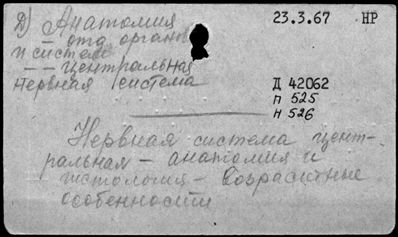 Д) Анатомия
23.3.67 НР
– отд. орган
и систем
– – центральная
нервная система
Д 42062
П 525
Н 526
Нервная система цент-
ральная – анатомия и
гистология – Возрастные
особенности